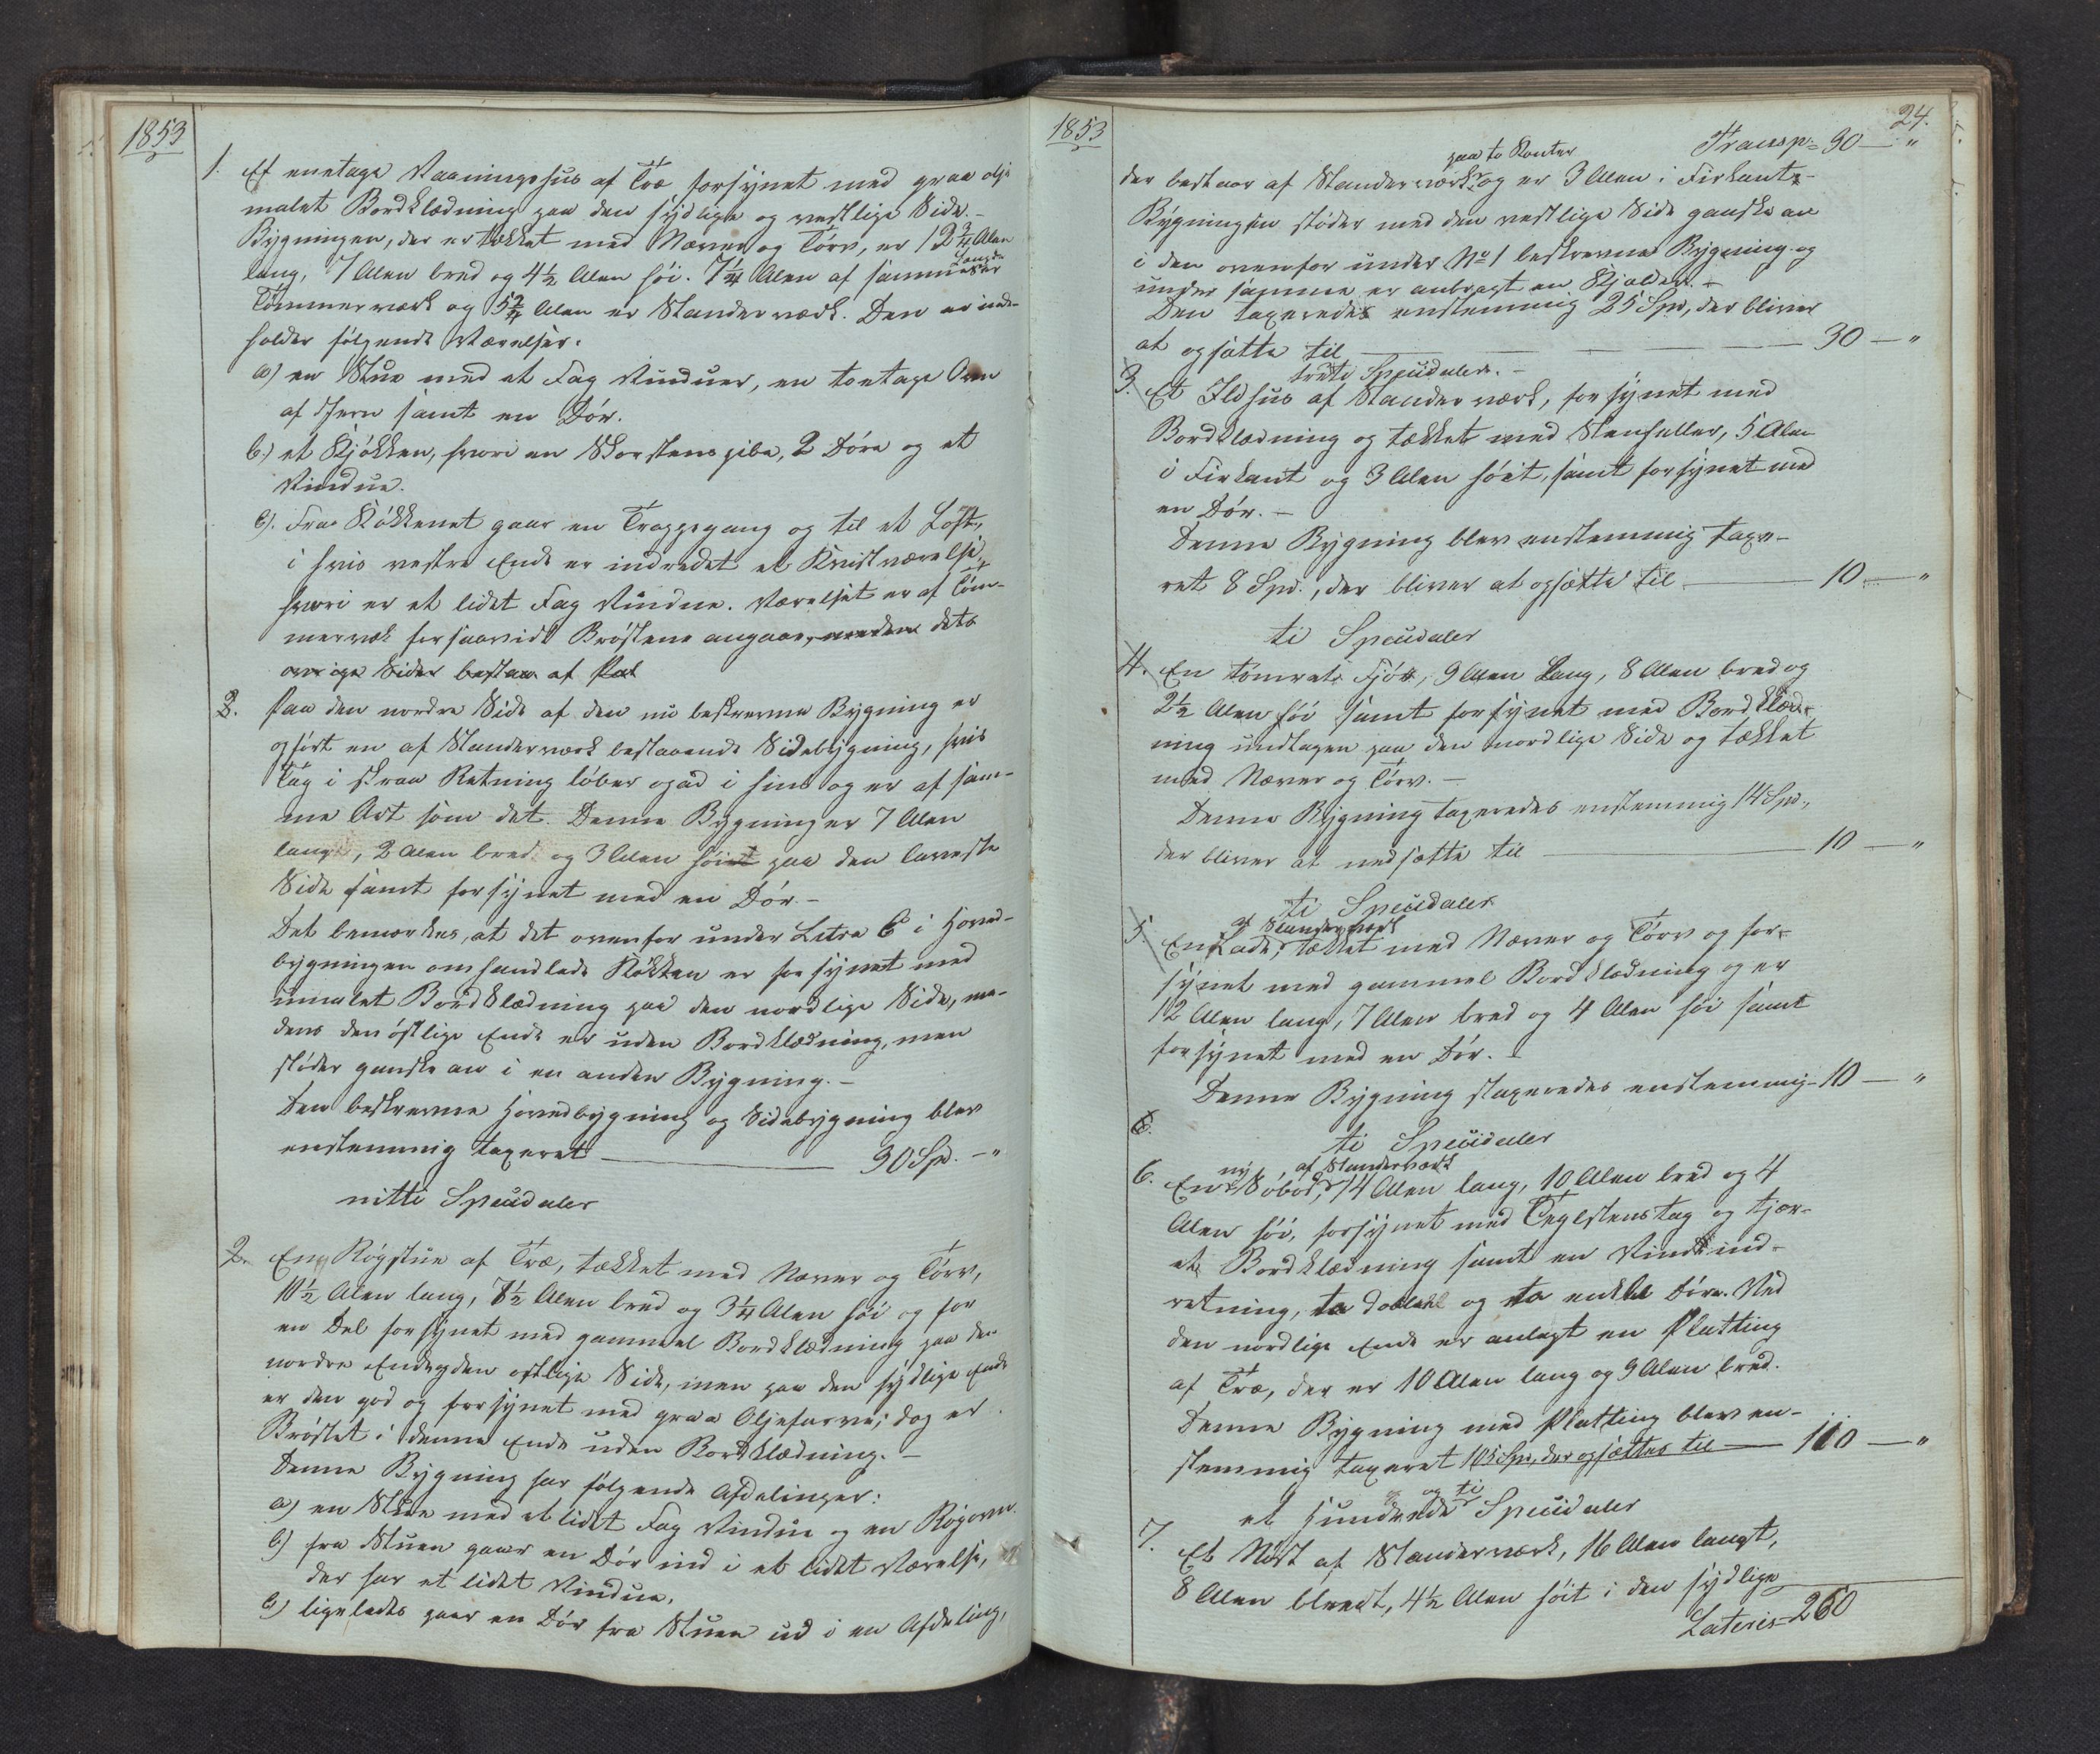 1853
1. Et enetages Vaaningshus af Træ forsynet med graa olje
malet Bordklædning paa den sydlige og vestlige Side. –
Bygningen, der er tækket med Næver og Törv, er 12 3/4 Alen
lang, 7 Alen bred og 4½ Alen høi. 7¼ Alen af sammes Længde er
Tömmerværk og 5 2/4 Alen er Standerværk. Den er inde-
holder følgende Værelser:
a) en Stue med et Fag Vinduer, en toetages Ovn
af Jern samt en Dör.
b) et Kjökken, hvori en Skorstenspibe, 2 Döre og et
Vindue.
c). Fra Kökkenet gaar en Trappegang og til et Loft,
i hvis vestre Ende er indredet et Kvistværelse,
hvori er et lidet Fag Vindue. Værelset er af Töm-
merværk forsaavidt Bröstene angaar, medens dets
øvrige Sider bestaar af Pal
2. Paa den nordre Side af den nu beskrevne Bygning er
opfört en af Standerværk bestaaende Sidebygning, hvis
Tag i skraa Retning löber opad i hins og er af sam-
me Art som det. Denne Bygning er 7 Alen
lang, 2 Alen bred og 3 Alen höi paa den laveste
Side samt forsynet med en Dör. –
Det bemærkes, at det ovenfor under Litra C i Hoved-
bygningen omhandlede Kökken er forsynet med
umalet Bordklædning paa den nordlige Side, me-
dens den östlige Ende er uden Bordklædning, men
stöder ganske an i en anden Bygning. –
Den beskrevne Hovedbygning og Sidebygning blev
enstemmig taxeret — 90 Spd. – "
nitti Speciedaler
2. En Rögstue af Træ, tækket med Næver og Törv,
10½ Alen lang, 8½ Alen bred og 3¼ Alen höi og for
en Del forsynet med gammel Bordklædning paa den
nordre Ende og den östlige Side, men paa den sydlige Ende
er den god og forsynet med graa Oljefarve; dog er
Bröstet i denne Ende uden Bordklædning. –
Denne Bygning har følgende Afdelinger:
a) en Stue med et lidet Fag Vindue og en Rögovn.
b) fra Stuen gaar en Dör ind i et lidet Værelse,
der har et lidet Vindue.
c) ligeledes gaar en Dör fra Stuen ud i en Afdeling,
1853
24.
Transp = 90 — "
paa to Kanter
der bestaar af Standerværk og er 3 Alen i Firkant. –
Bygningen stöder med den vestlige Side ganske an
i den ovenfor under No 1 beskrevne Bygning og
under samme er anbragt en Kjelder. –
Den taxeredes enstemmig 25 Spd, der bliver
at opsætte til — 30 — "
tredve Speciedaler. –
3. Et Ildhus af Standerværk, forsynet med
Bordklædning og tækket med Stenheller, 5 Alen
i Firkant og 3 Alen höit, samt forsynet med
en Dör. –
Denne Bygning blev enstemmig taxe-
ret 8 Spd., der bliver at opsætte til — 10 — "
ti Speciedaler
4. En tömret Fjös, 9 Alen lang, 8 Alen bred og
2½ Alen höi samt forsynet med Bordklæd-
ning undtagen paa den nordlige Side og tækket
med Næver og Törv. –
Denne Bygning taxeredes enstemmig 14 Spd.,
der bliver at nedsætte til — 10 — "
ti Speciedaler
af Standerværk
5. En Lade, tækket med Næver og Törv og for-
synet med gammel Bordklædning og er
12 Alen lang, 7 Alen bred og 4 Alen höi samt
forsynet med en Dör. –
Denne Bygning taxeredes enstemmig – 10 — "
6.
ti Speciedaler
ny af Standerværk
6. En Söbod, 14 Alen lang, 10 Alen bred og 4
Alen höi, forsynet med Teglstenstag og tjær-
et Bordklædning samt en Vindeind-
retning, to dobbelte og to enkle Döre. Ved
den nordlige Ende er anlagt en Platting
af Træ, der er 10 Alen lang og 9 Alen bred.
Denne Bygning med Platting blev en-
stemmig taxeret 105 Spd, der opsættes til — 110 — "
et Hundrede og ti Speciedaler
7. Et Nöst af Standerværk, 16 Alen langt,
8 Alen bredt, 4½ Alen höit i den sydlige
Lateris = 260